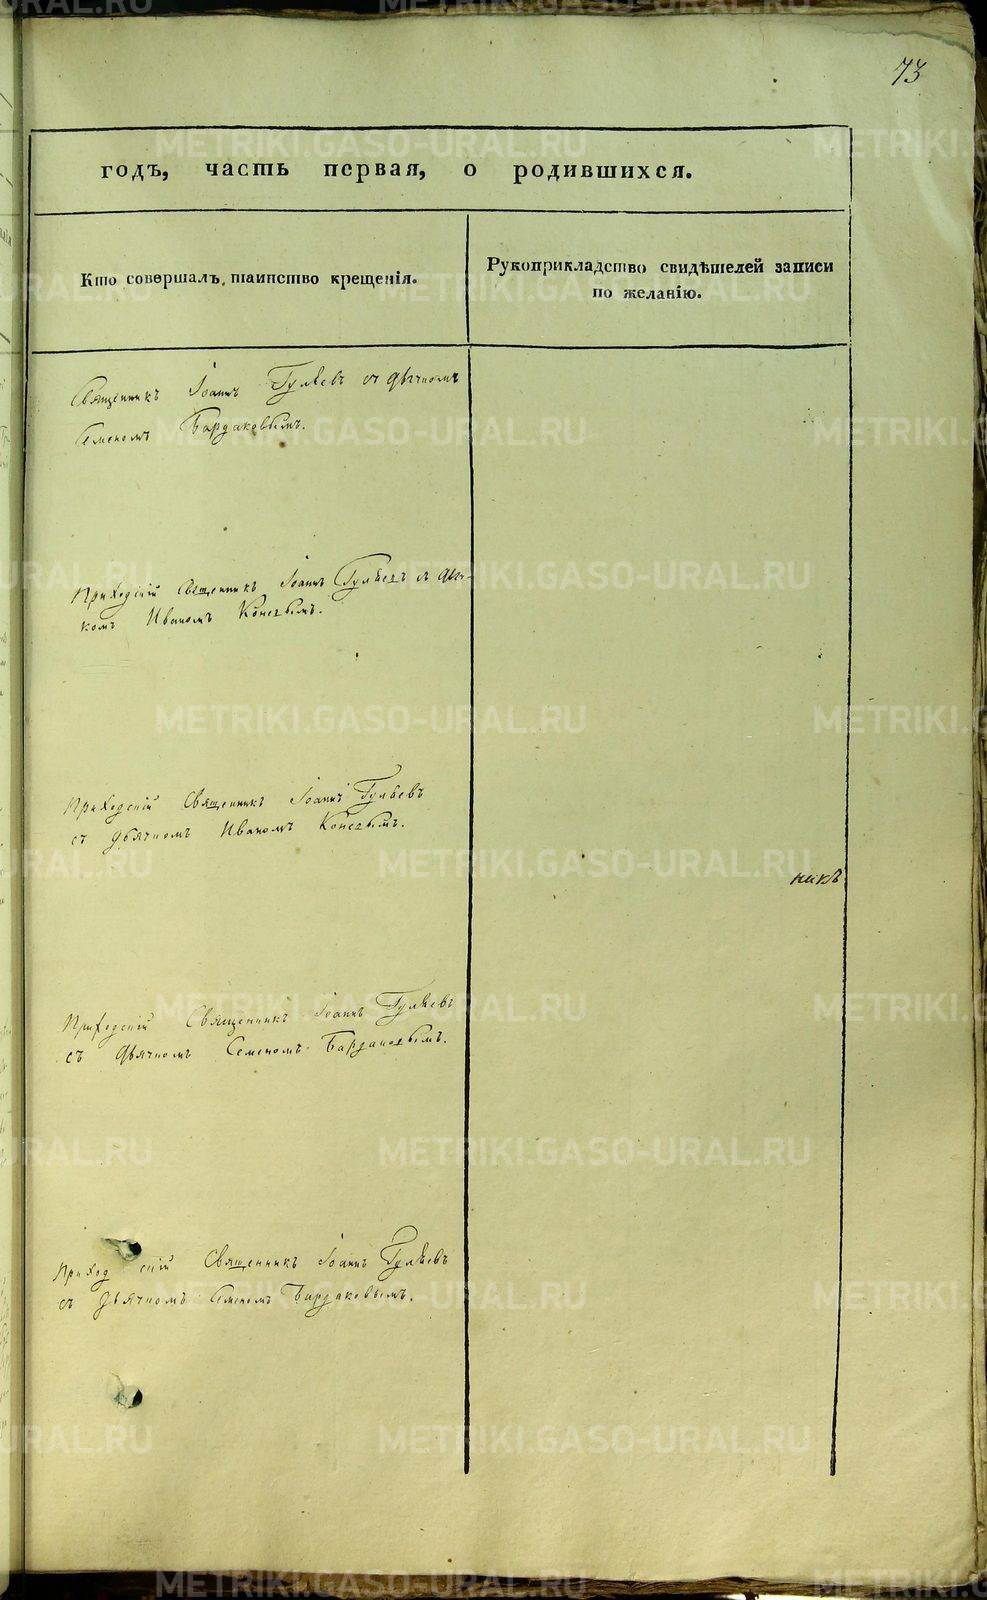 73
годъ, часть первая, о родившихся.
Кто совершалъ таинство крещенія.
Рукоприкладство свидѣтелей записи
по желанію.
Священникъ Іоаннъ Гуляевъ съ дьячкомъ
Семеномъ Бардаковымъ.
Приходскій Священникъ Іоаннъ Гуляевъ съ дьяч-
комъ Иваномъ
Приходскій Священникъ Іоаннъ Гуляевъ
съ дьячкомъ Иваномъ
никъ
Приходскій Священникъ Іоаннъ Гуляевъ
съ дьячкомъ Семеномъ Бардаковымъ.
Приходскій Священникъ Іоаннъ Гуляевъ
съ дьячкомъ Семеномъ Бардаковымъ.
METRIKI.GASO-URAL.RU